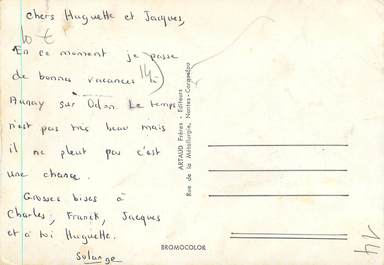 Chers Huguette et Jacques,
10 €
En ce moment je passe
de bonnes vacances à
Aunay sur Odon. Le temps
n'est pas très beau mais
il ne pleut pas c'est
une chance.
Grosses bises à
Charles, Franck, Jacques
et à toi Huguette.
Solange
ARTAUD Frères - Editeurs
Rue de la Métallurgie, Nantes-Carquefou
BROMOCOLOR
14